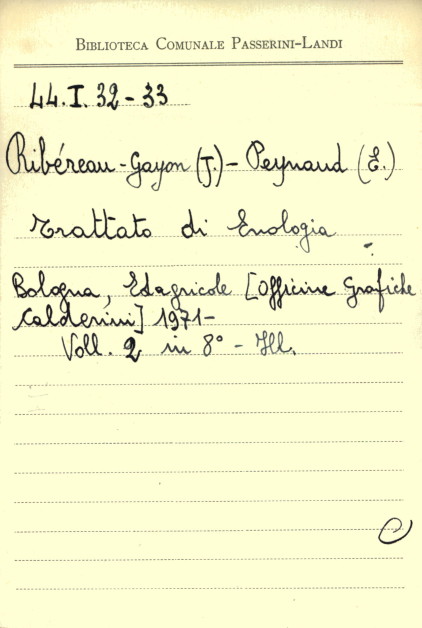 BIBLIOTECA COMUNALE PASSERINI-LANDI
44.I.32-33
Ribéreau-Gayon (J.) - Peynaud (E.)
Trattato di Enologia
Bologna, Edagricole [Officine Grafiche
Calderini] 1971-
Voll. 2 in 8° - Ill.
C